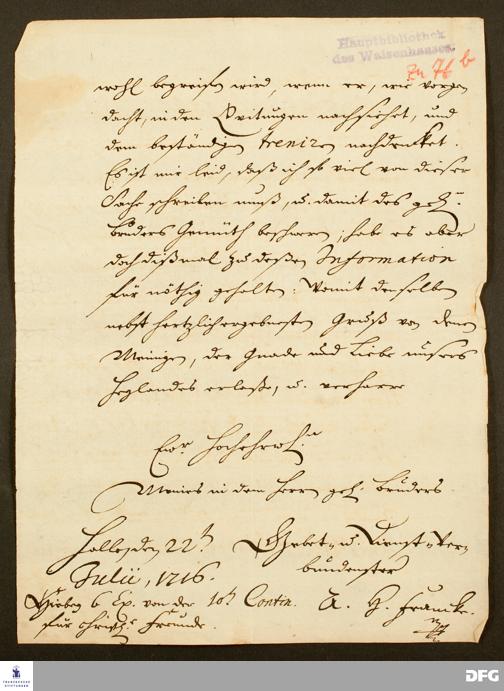 Hauptbibliothek
des Waisenhauses.
Zu 76 b
wohl begreifen wird, wenn er, wie vorge-
dacht, in den Quitungen nachsiehet, und
dem beständigen nachdencket.
Es ist mir leid, daß ich so viel von dieser
Sache schreiben muß, u. damit des geh.
Bruders Gemüth beschwere; habe es aber
doch dißmal zu deßen Information
für nöthig gehalten. Womit denselben
nebst hertzlich ergebensten Gruß von denen
Meinigen, der Gnade und Liebe unsers
Heylandes erlaße, u. verharre
Ewr. Hochehrw.
Meines in dem Herrn geh. Bruders
Halle, den 22t.
Julii, 1716.
Gebet- u. Dienst-Ver-
bundenster
A. H. Francke.
Hierbey 6 Ex. von der 10t Contin.
für christl. Freunde.
FRANCKESCHE
STIFTUNGEN
DFG